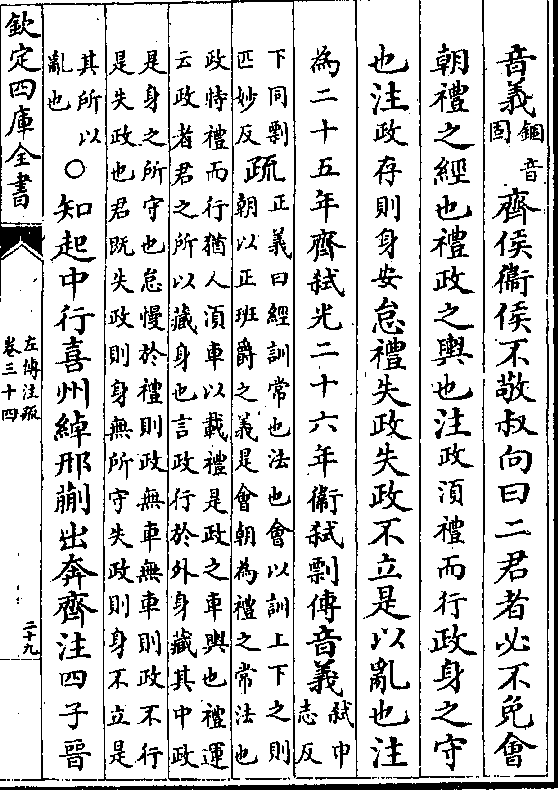 音義錮音固齊侯衞侯不敬叔向曰二君者必不免會
朝禮之經也禮政之輿也注政湏禮而行政身之守
也注政存則身安怠禮失政失政不立是以亂也注
為二十五年齊弑光二十六年衞弑剽傳音義弑申志反
下同剽匹妙反疏正義曰經訓常也法也會以訓上下之則
朝以正班爵之義是會朝為禮之常法也
政恃禮而行猶人湏車以載禮是政之車輿也禮運
云政者君之所以藏身也言政行於外身藏其中政
是身之所守也怠慢於禮則政無車無車則政不行
是失政也君既失政則身無所守失政則身不立是
其所以亂也○知起中行喜州綽邢蒯出奔齊注四子晉
欽定四庫全書
左傳注疏
卷三十四
二十九